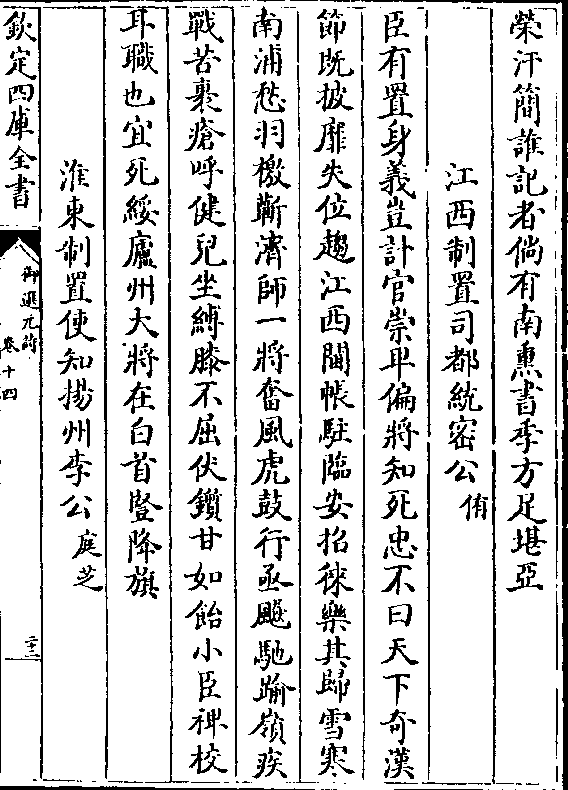 榮汗簡誰記者倘有南熏書季方足堪亞
江西制置司都統密公侑
臣有置身義豈計官崇卑偏將知死忠不曰天下奇漢
節既披靡失位趨江西閫帳駐臨安招徠樂其歸雪寒
南浦愁羽檄蘄濟師一將奮風虎鼓行亟飈馳踰嶺疾
戰苦裹瘡呼健兒坐縛膝不屈伏鑕甘如飴小臣裨校
耳職也宜死綏廬州大將在白首豎降旗
淮東制置使知揚州李公庭芝
欽定四庫全書
御選元詩
卷十四
二十二